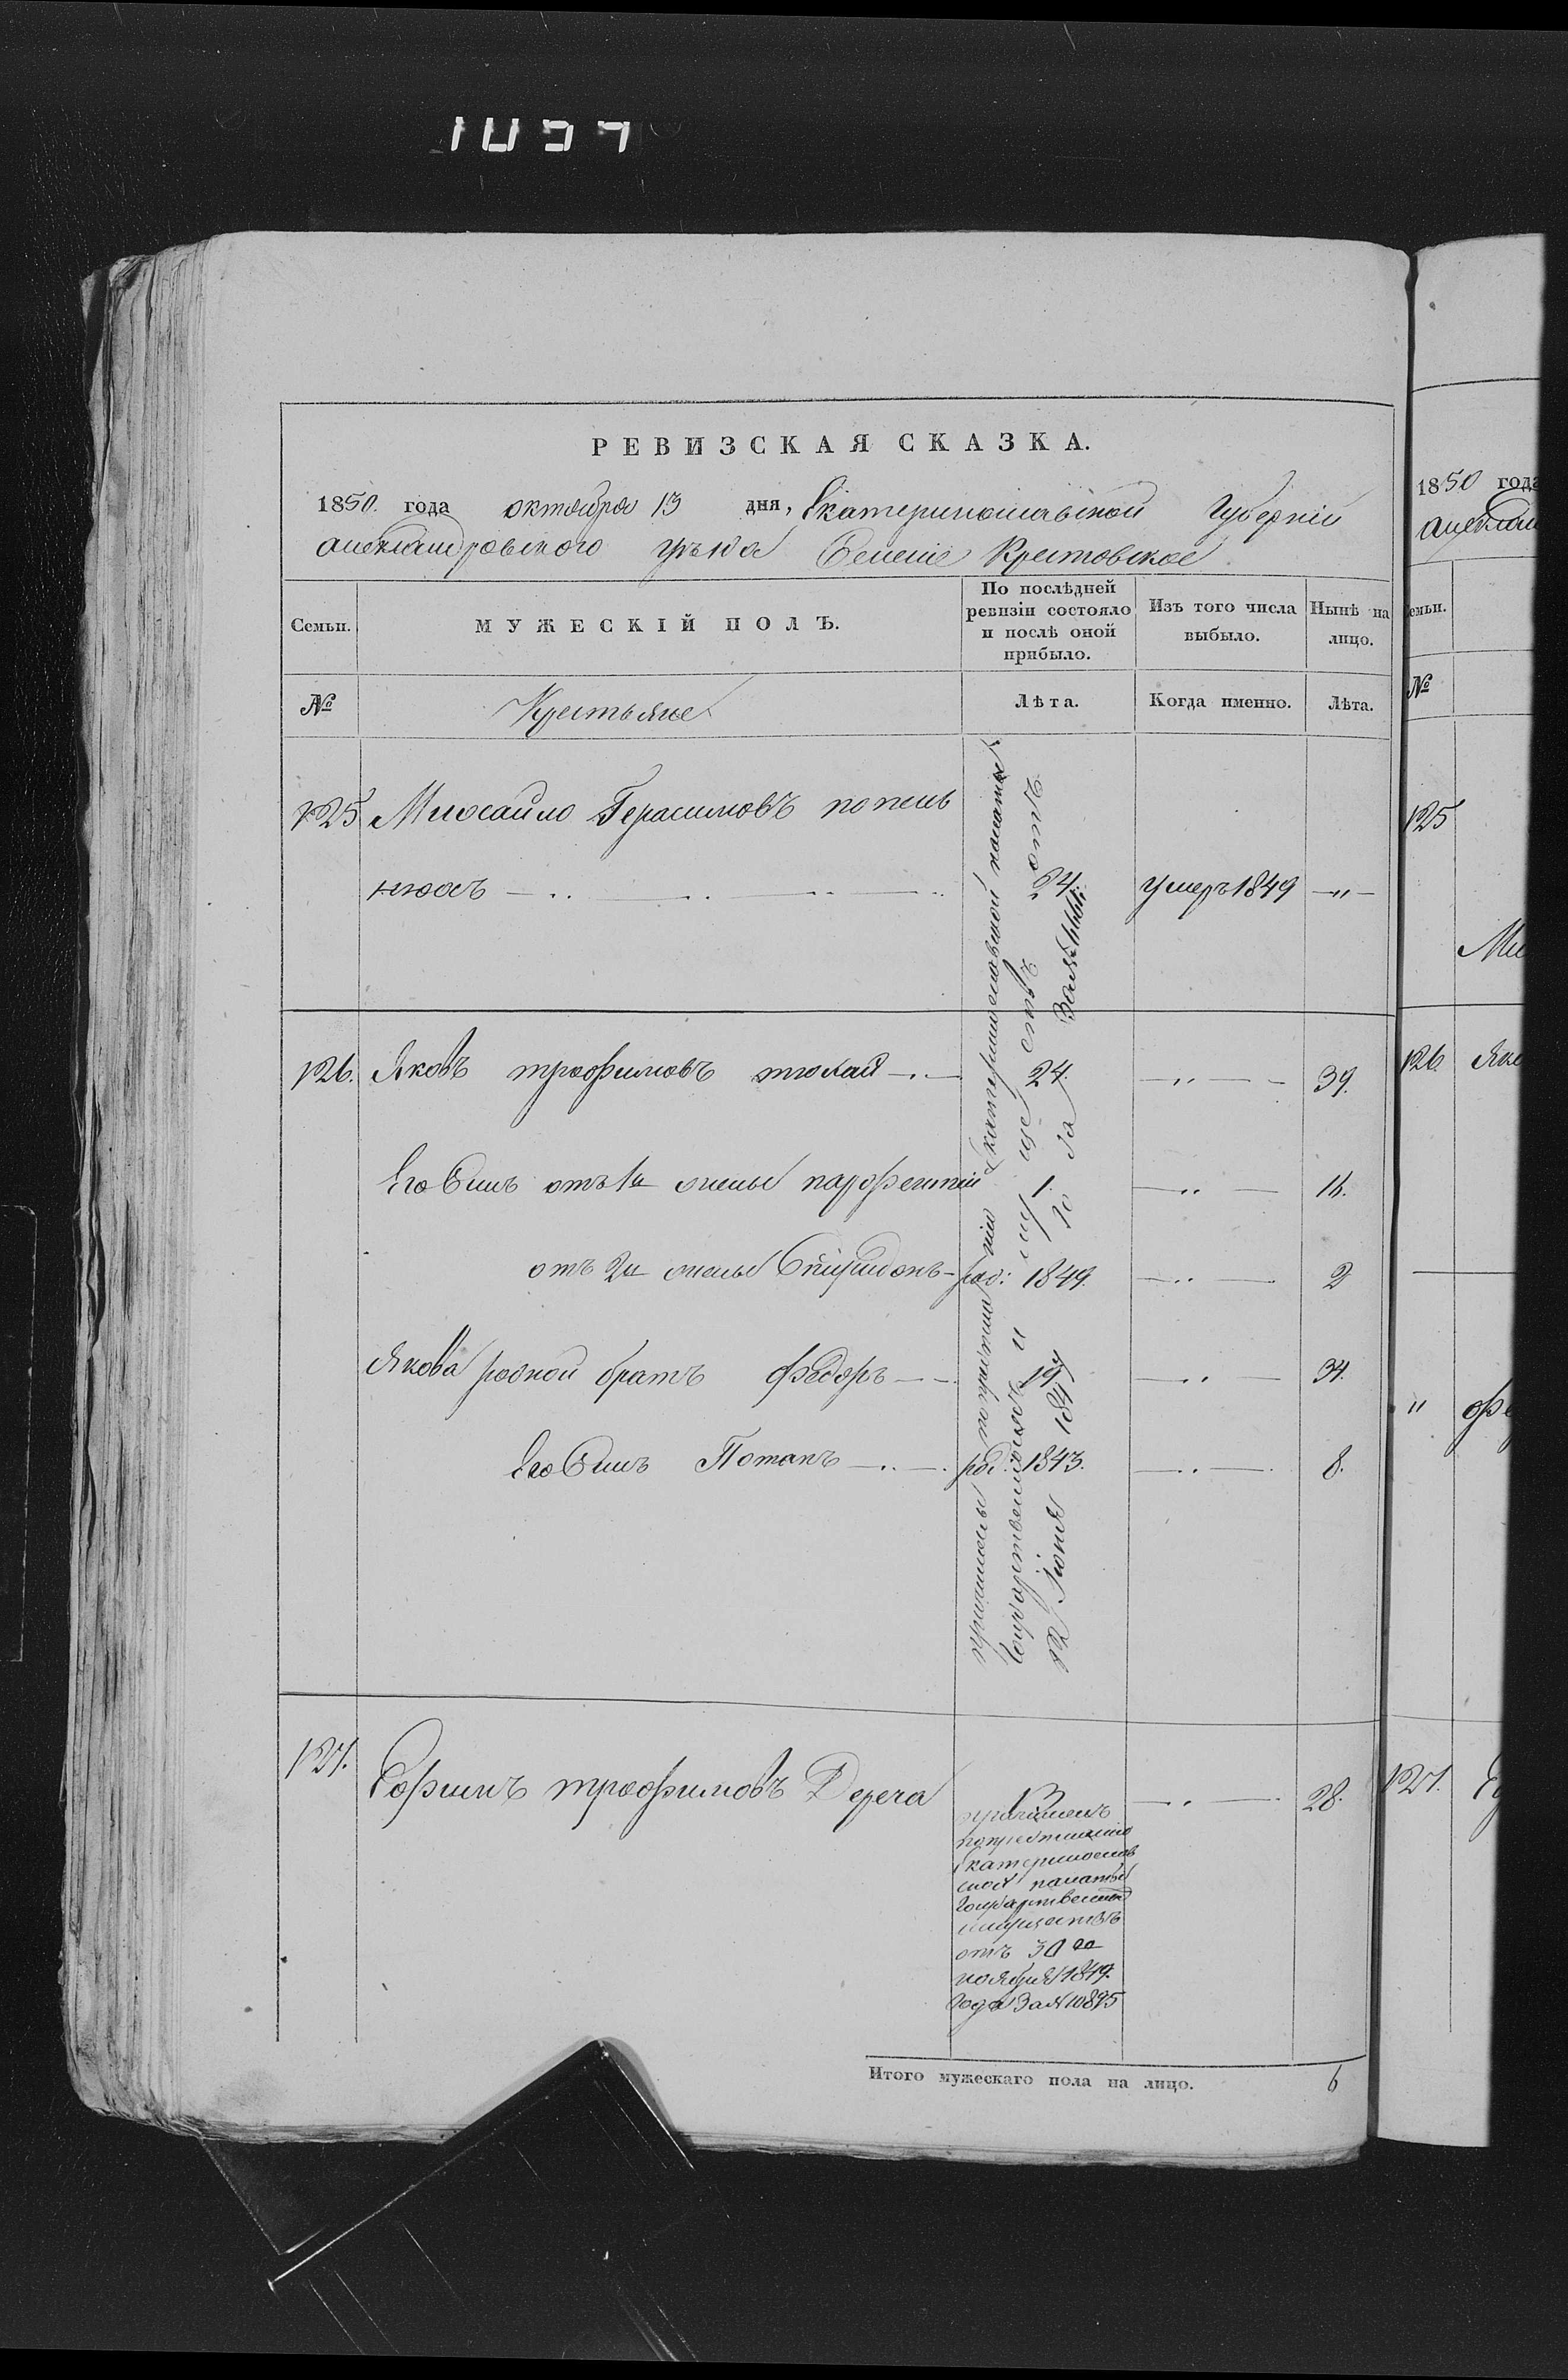 РЕВИЗСКАЯ СКАЗКА.
1850. года октября 13 дня, Екатеринославской Губерніи
александровского уѣзда Селеніе Крестовское
Семьи.
МУЖЕСКІЙ ПОЛЪ.
По послѣдней ревизіи состояло и послѣ оной прибыло.
Изъ того числа выбыло.
Нынѣ на лицо.
№
Крестьяне
Лѣта.
Когда именно.
Лѣта.
125 Михайло Герасимовъ попель
нюхъ 24. умеръ 1849 — " —
126. Яковъ трофимовъ 24. — " — 39.
Его Сынъ отъ 1й жены парфентій 1. — " — 16.
отъ 2й жены Спиридонъ — род: 1849. — " — 2
Якова родной братъ федоръ 19 — " — 34.
Его Сынъ Потапъ род: 1843. — " — 8.
причислены по предписанію Екатеринославской палаты
Государственныхъ имуществъ отъ
12 Іюня 184 года За №
127. Ефимъ трофимовъ Дереча 13 — " — 28.
причисленъ
по предписанію
Екатеринослав
ской палаты
Государственныхъ
имуществъ
отъ 30 го
ноября 1849.
года За № 10895
Итого мужескаго пола на лицо. 6
1850 года
александ
Семьи.
№
125
Ми
126. Яко
" фе
127.